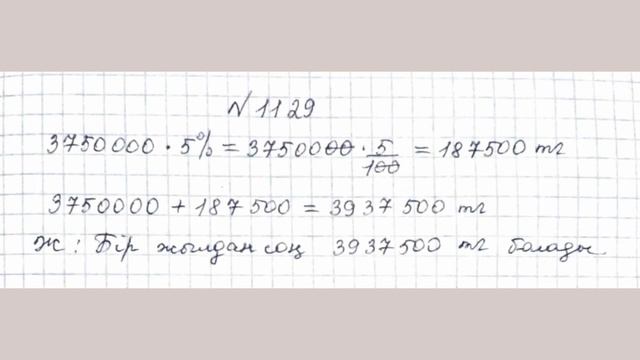 № 1129
3750000 · 5% = 3750000 · 5/100 = 187500 тг
3750000 + 187 500 = 3937 500 тг
Ж: Бір жылдан соң 3937500 тг болады.